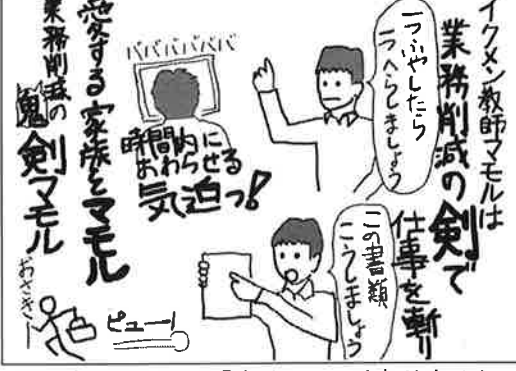 イクメン教師マモルは
業務削減の剣で
仕事を斬り
一つふやしたら
一つへらしましょう
この書類
こうしましょう
バババババババ
時間内に
おわらせる
気迫っ!
愛する家族をマモル
業務削減の
鬼剣マモル
おさきー
ピューー